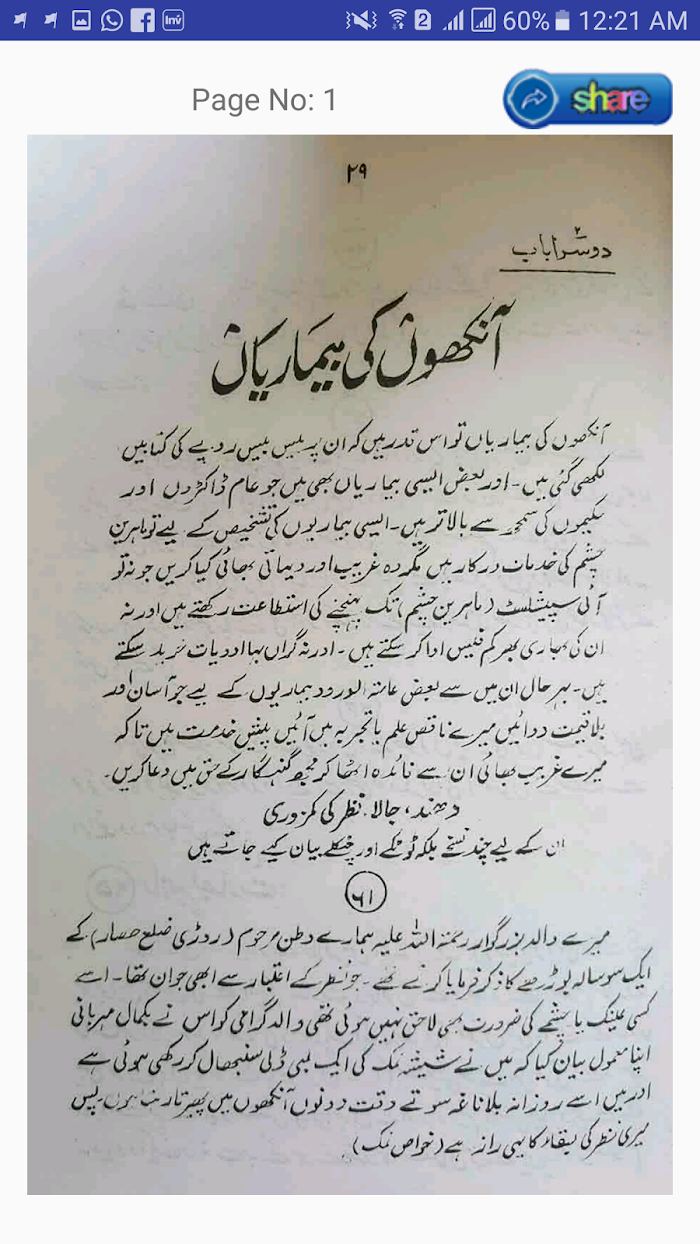 Inv 2 60% 12:21 AM
Page No: 1
share
۲۹
دوسرا باب
۲
آنکھوں کی بیماریاں
آنکھوں کی بیماریاں تو اس قدر ہیں کہ ان پر بیس بیس روپے کی کتابیں
لکھی گئی ہیں۔ اور بعض ایسی بیماریاں بھی ہیں جو عام ڈاکٹروں اور
حکیموں کی سمجھ سے بالاتر ہیں۔ ایسی بیماریوں کی تشخیص کے لیے تو ماہرین
چشم کی خدمات درکار ہیں مگر وہ غریب اور دیہاتی بھائی کیا کریں جو نہ تو
آئی سپیشلسٹ (ماہرین چشم) تک پہنچنے کی استطاعت رکھتے ہیں اور نہ
ان کی بھاری بھر کم فیس ادا کر سکتے ہیں۔ اور نہ گراں بہا ادویات خرید سکتے
ہیں۔ بہر حال ان میں سے بعض عامۃ الورود بیماریوں کے لیے جو آسان اور
بلا قیمت دوائیں میرے ناقص علم یا تجربہ میں آئیں پیش خدمت ہیں تاکہ
میرے غریب بھائی ان سے فائدہ اٹھا کر مجھ گنہگار کے حق میں دعا کریں۔
دھند، جالا، نظر کی کمزوری
ان کے لیے چند نسخے بلکہ ٹوٹکے اور چٹکلے بیان کیے جاتے ہیں
۶۱
میرے والد بزرگوار رحمۃ اللہ علیہ ہمارے وطن مرحوم (روڑی ضلع حصار) کے
ایک سو سالہ بوڑھے کا ذکر فرمایا کرتے تھے۔ جو نظر کے اعتبار سے ابھی جوان تھا۔ اسے
کسی عینک یا چشمے کی ضرورت بھی لاحق نہیں ہوئی تھی والد گرامی کو اس نے بکمال مہربانی
اپنا معمول بیان کیا کہ میں نے شیشہ نمک کی ایک لمبی ڈلی سنبھال کر رکھی ہوئی ہے
اور میں اسے روزانہ بلا ناغہ سوتے وقت دونوں آنکھوں میں پھیرتا رہتا ہوں پس
میری نظر کی بقاء کا یہی راز ہے (خواص نمک)۔